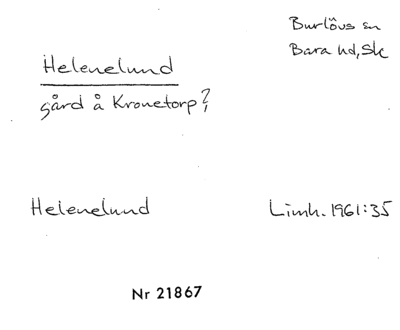 Burlövs sn
Bara hd, Sk
Helenelund
gård å Kronetorp?
Helenelund
Limh. 1961:35
Nr 21867